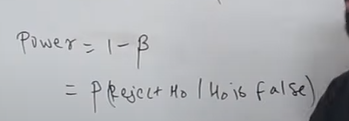 Power = 1 - β
= P(Reject H0 / H0 is false)